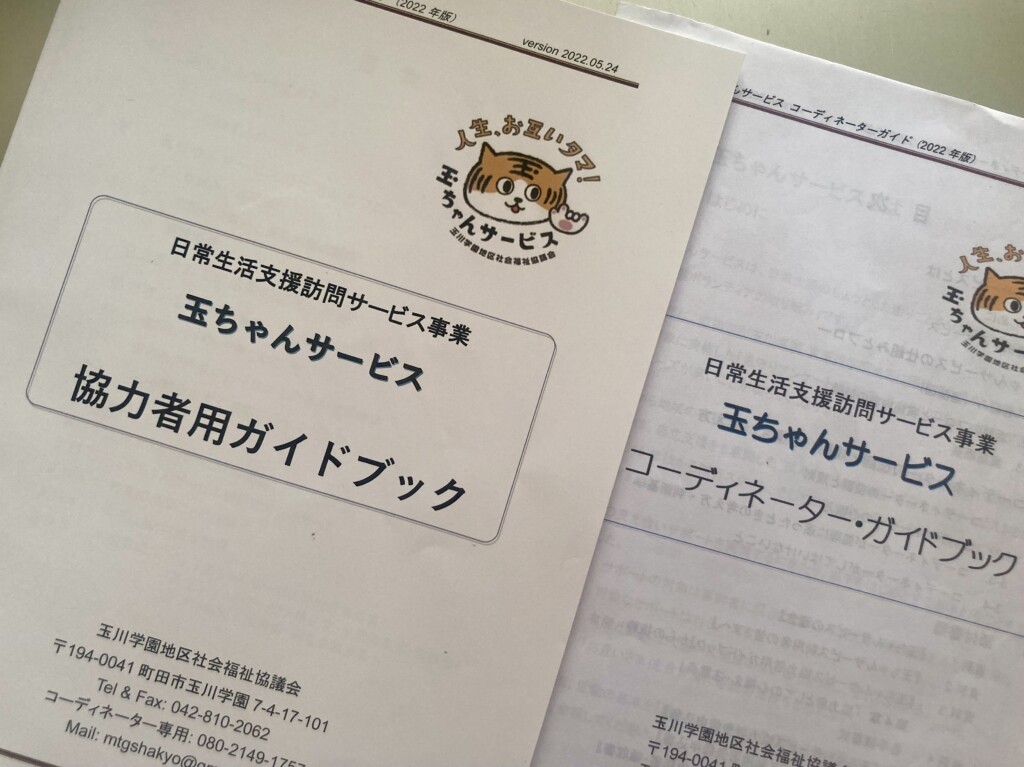 (2022年版)
version 2022.05.24
人生、お互いタマ!
玉
玉ちゃんサービス
玉川学園地区社会福祉協議会
日常生活支援訪問サービス事業
玉ちゃんサービス
協力者用ガイドブック
玉川学園地区社会福祉協議会
〒194-0041 町田市玉川学園 7-4-17-101
Tel & Fax: 042-810-2062
コーディネーター専用: 080-2149-1757
Mail: mtgshakyo@g
んサービス コーディネーターガイド (2022年版)
目次
人生、お
玉ちゃんサー
玉川学園地区社会
日常生活支援訪問サービス事業
玉ちゃんサービス
コーディネーター・ガイドブック
玉川学園地区社会福祉
〒194-0041 町田市玉川学園